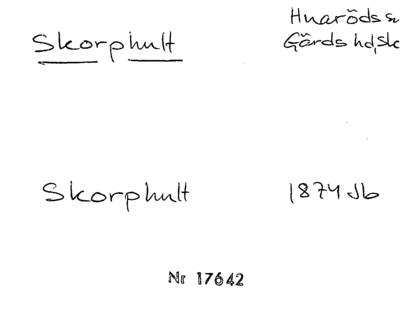 Skorphult
Huaröds sn
Gärds hd, Sk
Skorphult
1874 Jb
Nr 17642